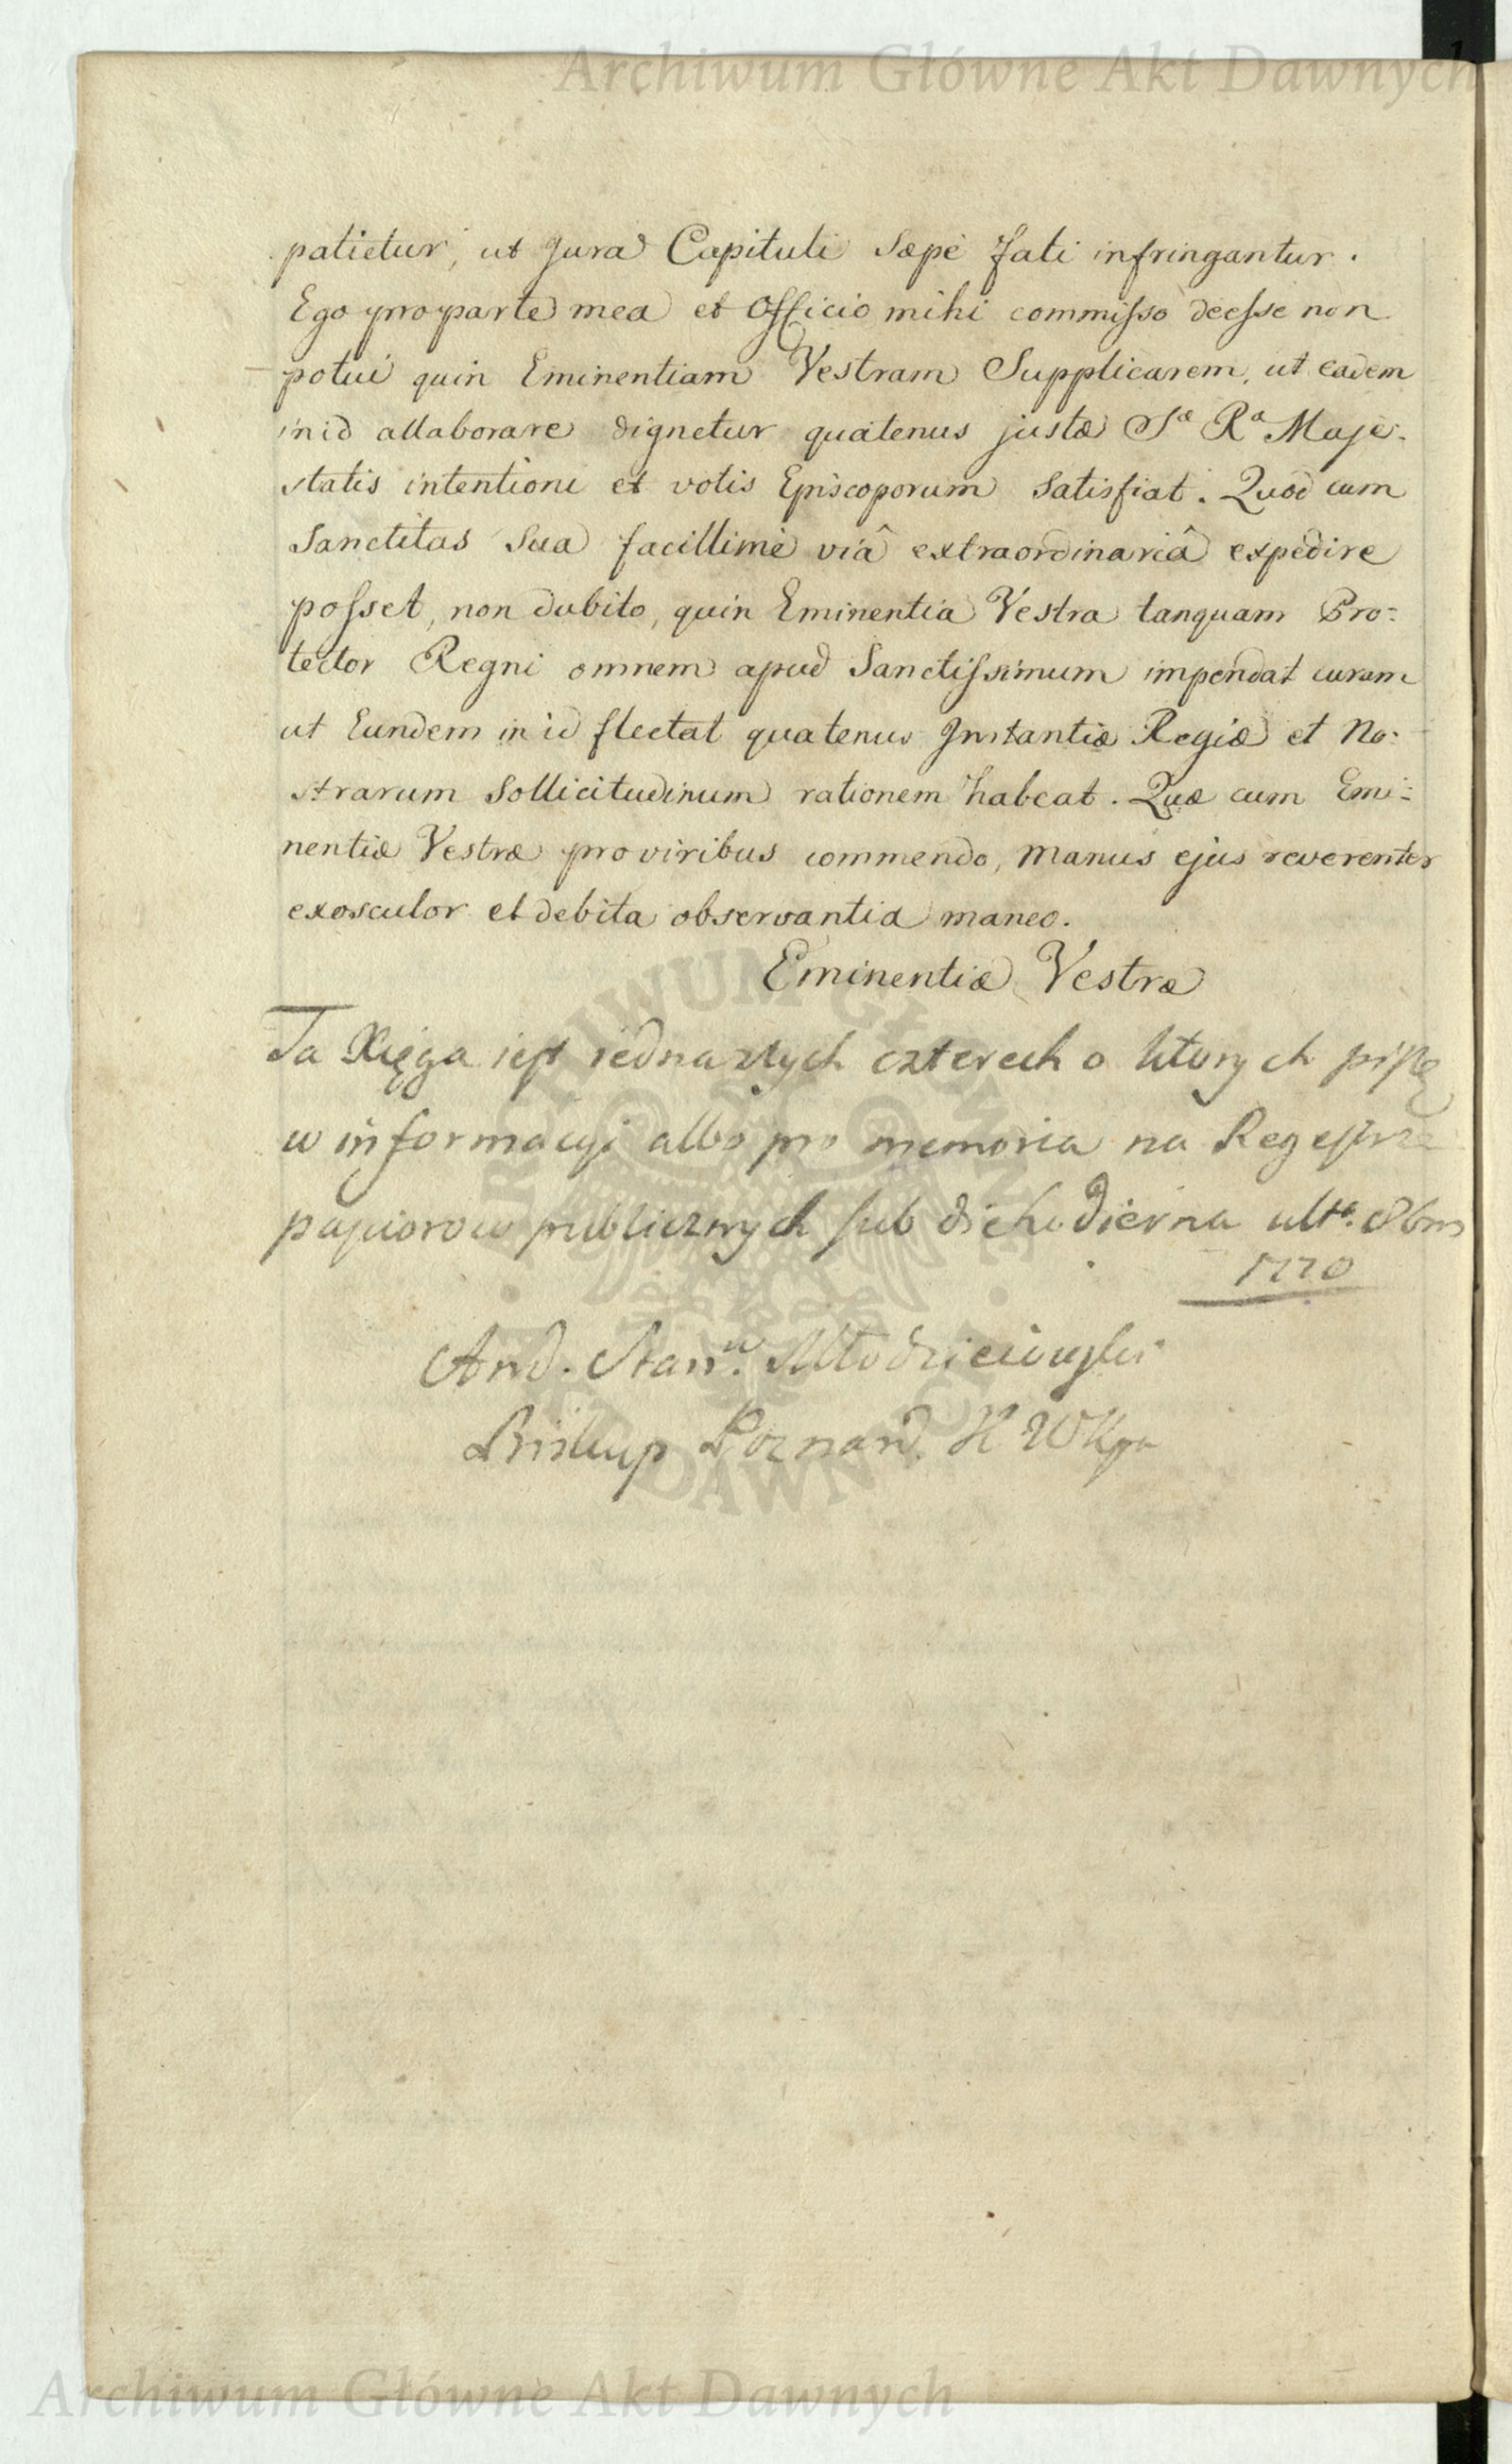 Archiwum Główne Akt Dawnych
patietur, ut Jura Capituli Sæpè fati infringantur.
Ego pro parte mea et Officio mihi commisso deesse non
potui quin Eminentiam Vestram Supplicarem, ut eadem
in id allaborare dignetur quatenus justæ Sæ Ræ Maje-
statis intentioni et votis Episcoporum Satisfiat. Quod cum
Sanctitas Sua facillimè viâ extraordinariâ expedire
posset, non dubito, quin Eminentia Vestra tanquam Pro:
tector Regni omnem apud Sanctissimum impendat curam
ut Eundem in id flectat quatenus Instantiæ Regiæ et No:
strarum Sollicitudinum rationem habeat. Quæ cum Emi:
nentiæ Vestræ pro viribus commendo, manus ejus reverenter
exosculor et debita observantia maneo.
Eminentiæ Vestræ
Ta Xięga iest iedna z tych czterech o ktorych piszę
w informacyi albo pro memoria na Regestrze
papiorow publicznych sub die
1770
And. Stan. Młodzieiowski
Biskup Poznań. K W K
ARCHIWUM GŁÓWNE AKT DAWNYCH
Archiwum Główne Akt Dawnych